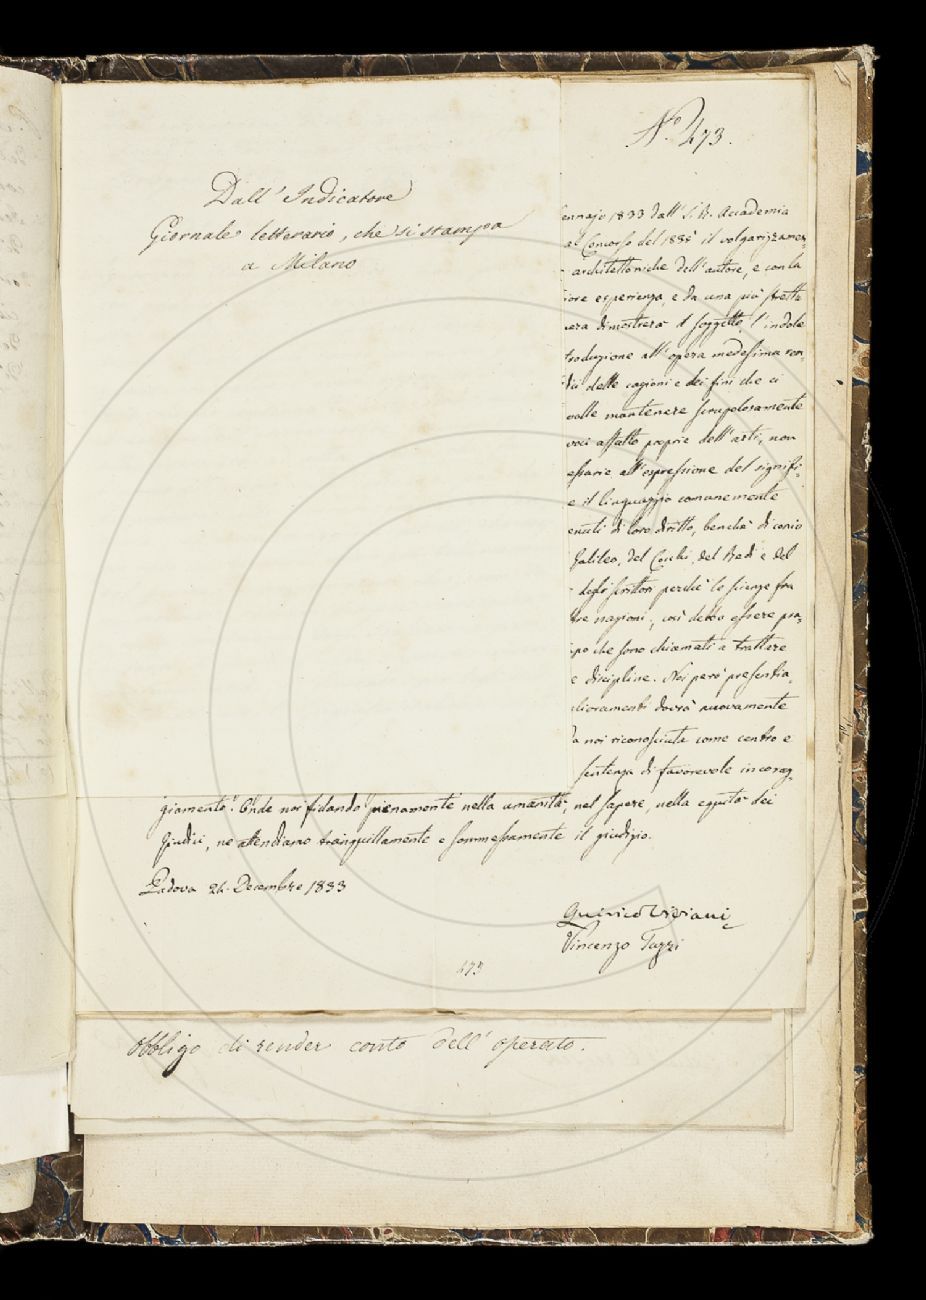 Dall' Indicatore
Giornale letterario, che si stampa
a Milano
N.º 473.
ennajo 1833 dall' I. R. Accademia
al Concorso del 1835 il volgarizzamen=
architettoniche dell'autore, e con la
iore esperienza, e da una più stretta
era dimostrerà il soggetto, l'indole
troduzione all' opera medesima ren=
delle cagioni e dei fini che ci
volle mantenere scrupolosamente
voci affatto proprie dell' arti, non
essarie all' espressione del signifi=
e il linguaggio comunemente
enuti di loro diritto, benchè di conio
Galileo, del Cocchi, del Redi e del
degli scrittori perchè le scienze fra
tre nazioni, così debbe essere pra=
po che sono chiamati a trattare
e discipline. Noi però presentia=
lioramenti dovrà nuovamente
da noi riconosciuta come centro e
sentenza di favorevole incorag=
giamento. Onde noi fidando pienamente nella umanità, nel sapere, nella equità dei
Giudici, ne attendiamo tranquillamente e sommessamente il giudizio.
Padova 24. Decembre 1833
Quirico Viviani
Vincenzo Tuzzi
473
obbligo di render conto dell' operato.